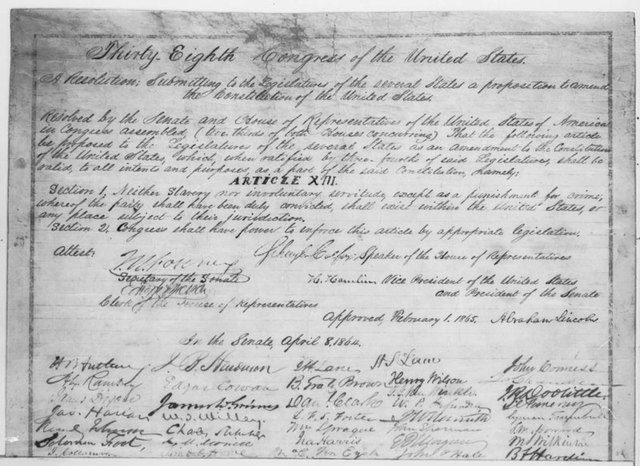 Thirty-Eighth Congress of the United States.
A Resolution; Submitting to the Legislatures of the several States a proposition to amend
the Constitution of the United States.
Resolved by the Senate and House of Representatives of the United States of America
in Congress assembled, (two thirds of both Houses concurring) That the following article
be proposed to the Legislatures of the several States as an amendment to the Constitution
of the United States, which, when ratified by three-fourths of said Legislatures, shall be
valid, to all intents and purposes, as a part of the said Constitution, namely:
ARTICLE XIII.
Section 1. Neither Slavery nor involuntary servitude, except as a punishment for crime,
whereof the party shall have been duly convicted, shall exist within the United States, or
any place subject to their jurisdiction.
Section 2. Congress shall have power to enforce this article by appropriate legislation.
Attest:
Schuyler Colfax, Speaker of the House of Representatives
J.W. Forney
Secretary of the Senate
H. Hamlin Vice President of the United States
and President of the Senate
Clerk of the House of Representatives
Approved, February 1. 1865. Abraham Lincoln
In the Senate, April 8, 1864.
J. B. Henderson
H S Lane
John Conness
Edgar Cowan
B. Gratz Brown
Henry Wilson
J R Doolittle
James W. Grimes
Dan'l Clark
Jas. Harlan
Lyman Trumbull
Chas. Sumner
Wm Sprague
John Sherman
Solomon Foot
Ira Harris
E D Morgan
M S Wilkinson
John P Hale